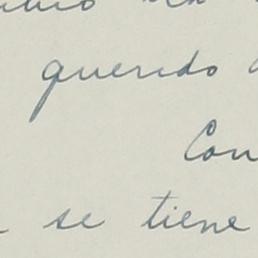 querido
Con
se tiene